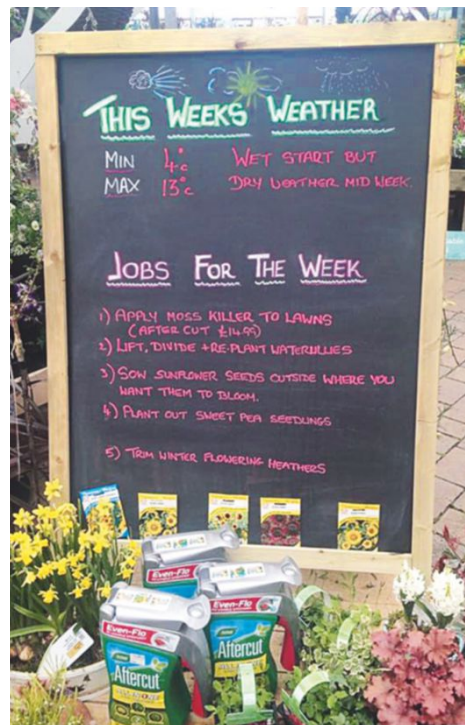 THIS WEEKS WEATHER
MIN 4°c WET START BUT
MAX 13°c DRY WEATHER MID WEEK.
JOBS FOR THE WEEK
1) APPLY MOSS KILLER TO LAWNS
(AFTER CUT £14.99)
2) LIFT, DIVIDE + RE-PLANT WATERLILIES
3) SOW SUNFLOWER SEEDS OUTSIDE WHERE YOU
WANT THEM TO BLOOM.
4) PLANT OUT SWEET PEA SEEDLINGS
5) TRIM WINTER FLOWERING HEATHERS
Even-Flo
Even-Flo
Aftercut
Even-Flo
Aftercut